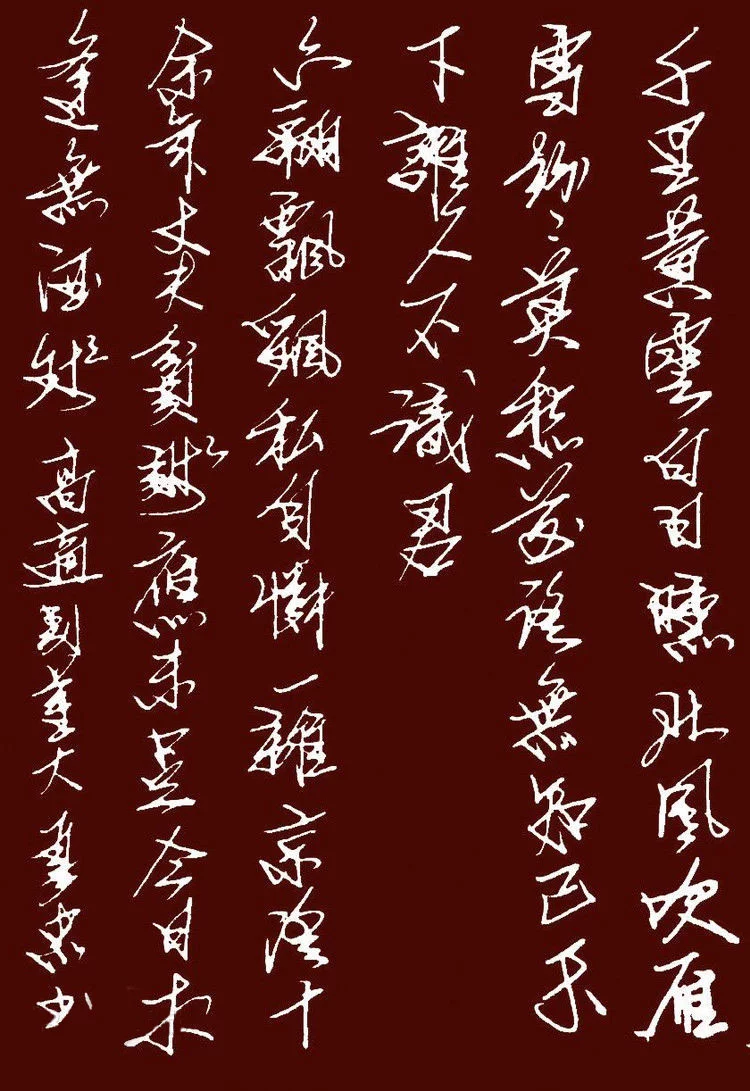 千里黃雲白日曛北風吹雁
雪紛々莫愁前路無知己天
下誰人不識君
六翮飄飖私自憐一離京洛十
余年丈夫貧賤應未足今日相
逢無酒錢 高適別董大 忠书